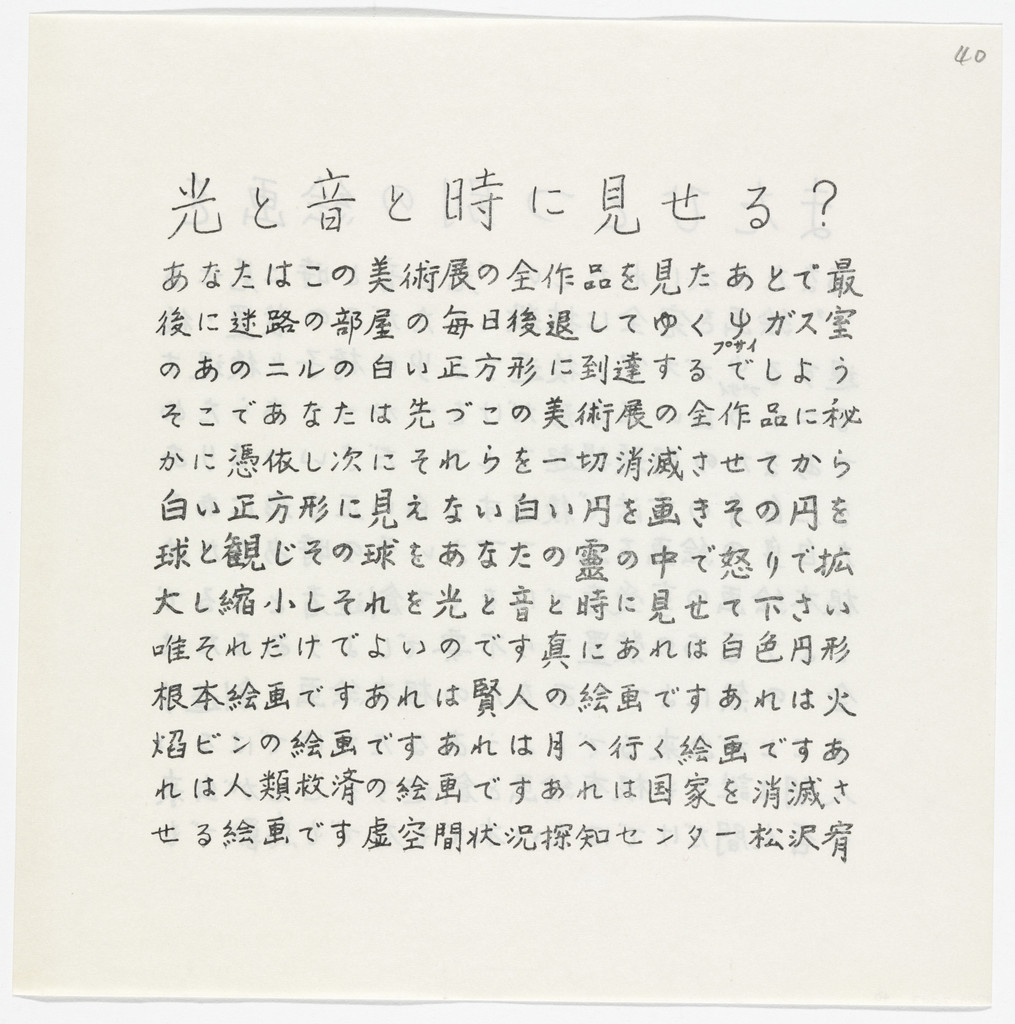 40
光と音と時に見せる?
あなたはこの美術展の全作品を見たあとで最
後に迷路の部屋の毎日後退してゆくψガス室
プサイ
のあのニルの白い正方形に到達するでしょう
そこであなたは先づこの美術展の全作品に秘
かに憑依し次にそれらを一切消滅させてから
白い正方形に見えない白い円を画きその円を
球と観じその球をあなたの靈の中で怒りで拡
大し縮小しそれを光と音と時に見せて下さい
唯それだけでよいのです真にあれは白色円形
根本絵画ですあれは賢人の絵画ですあれは火
焰ビンの絵画ですあれは月へ行く絵画ですあ
れは人類救済の絵画ですあれは国家を消滅さ
せる絵画です虚空間状況探知センター松沢宥